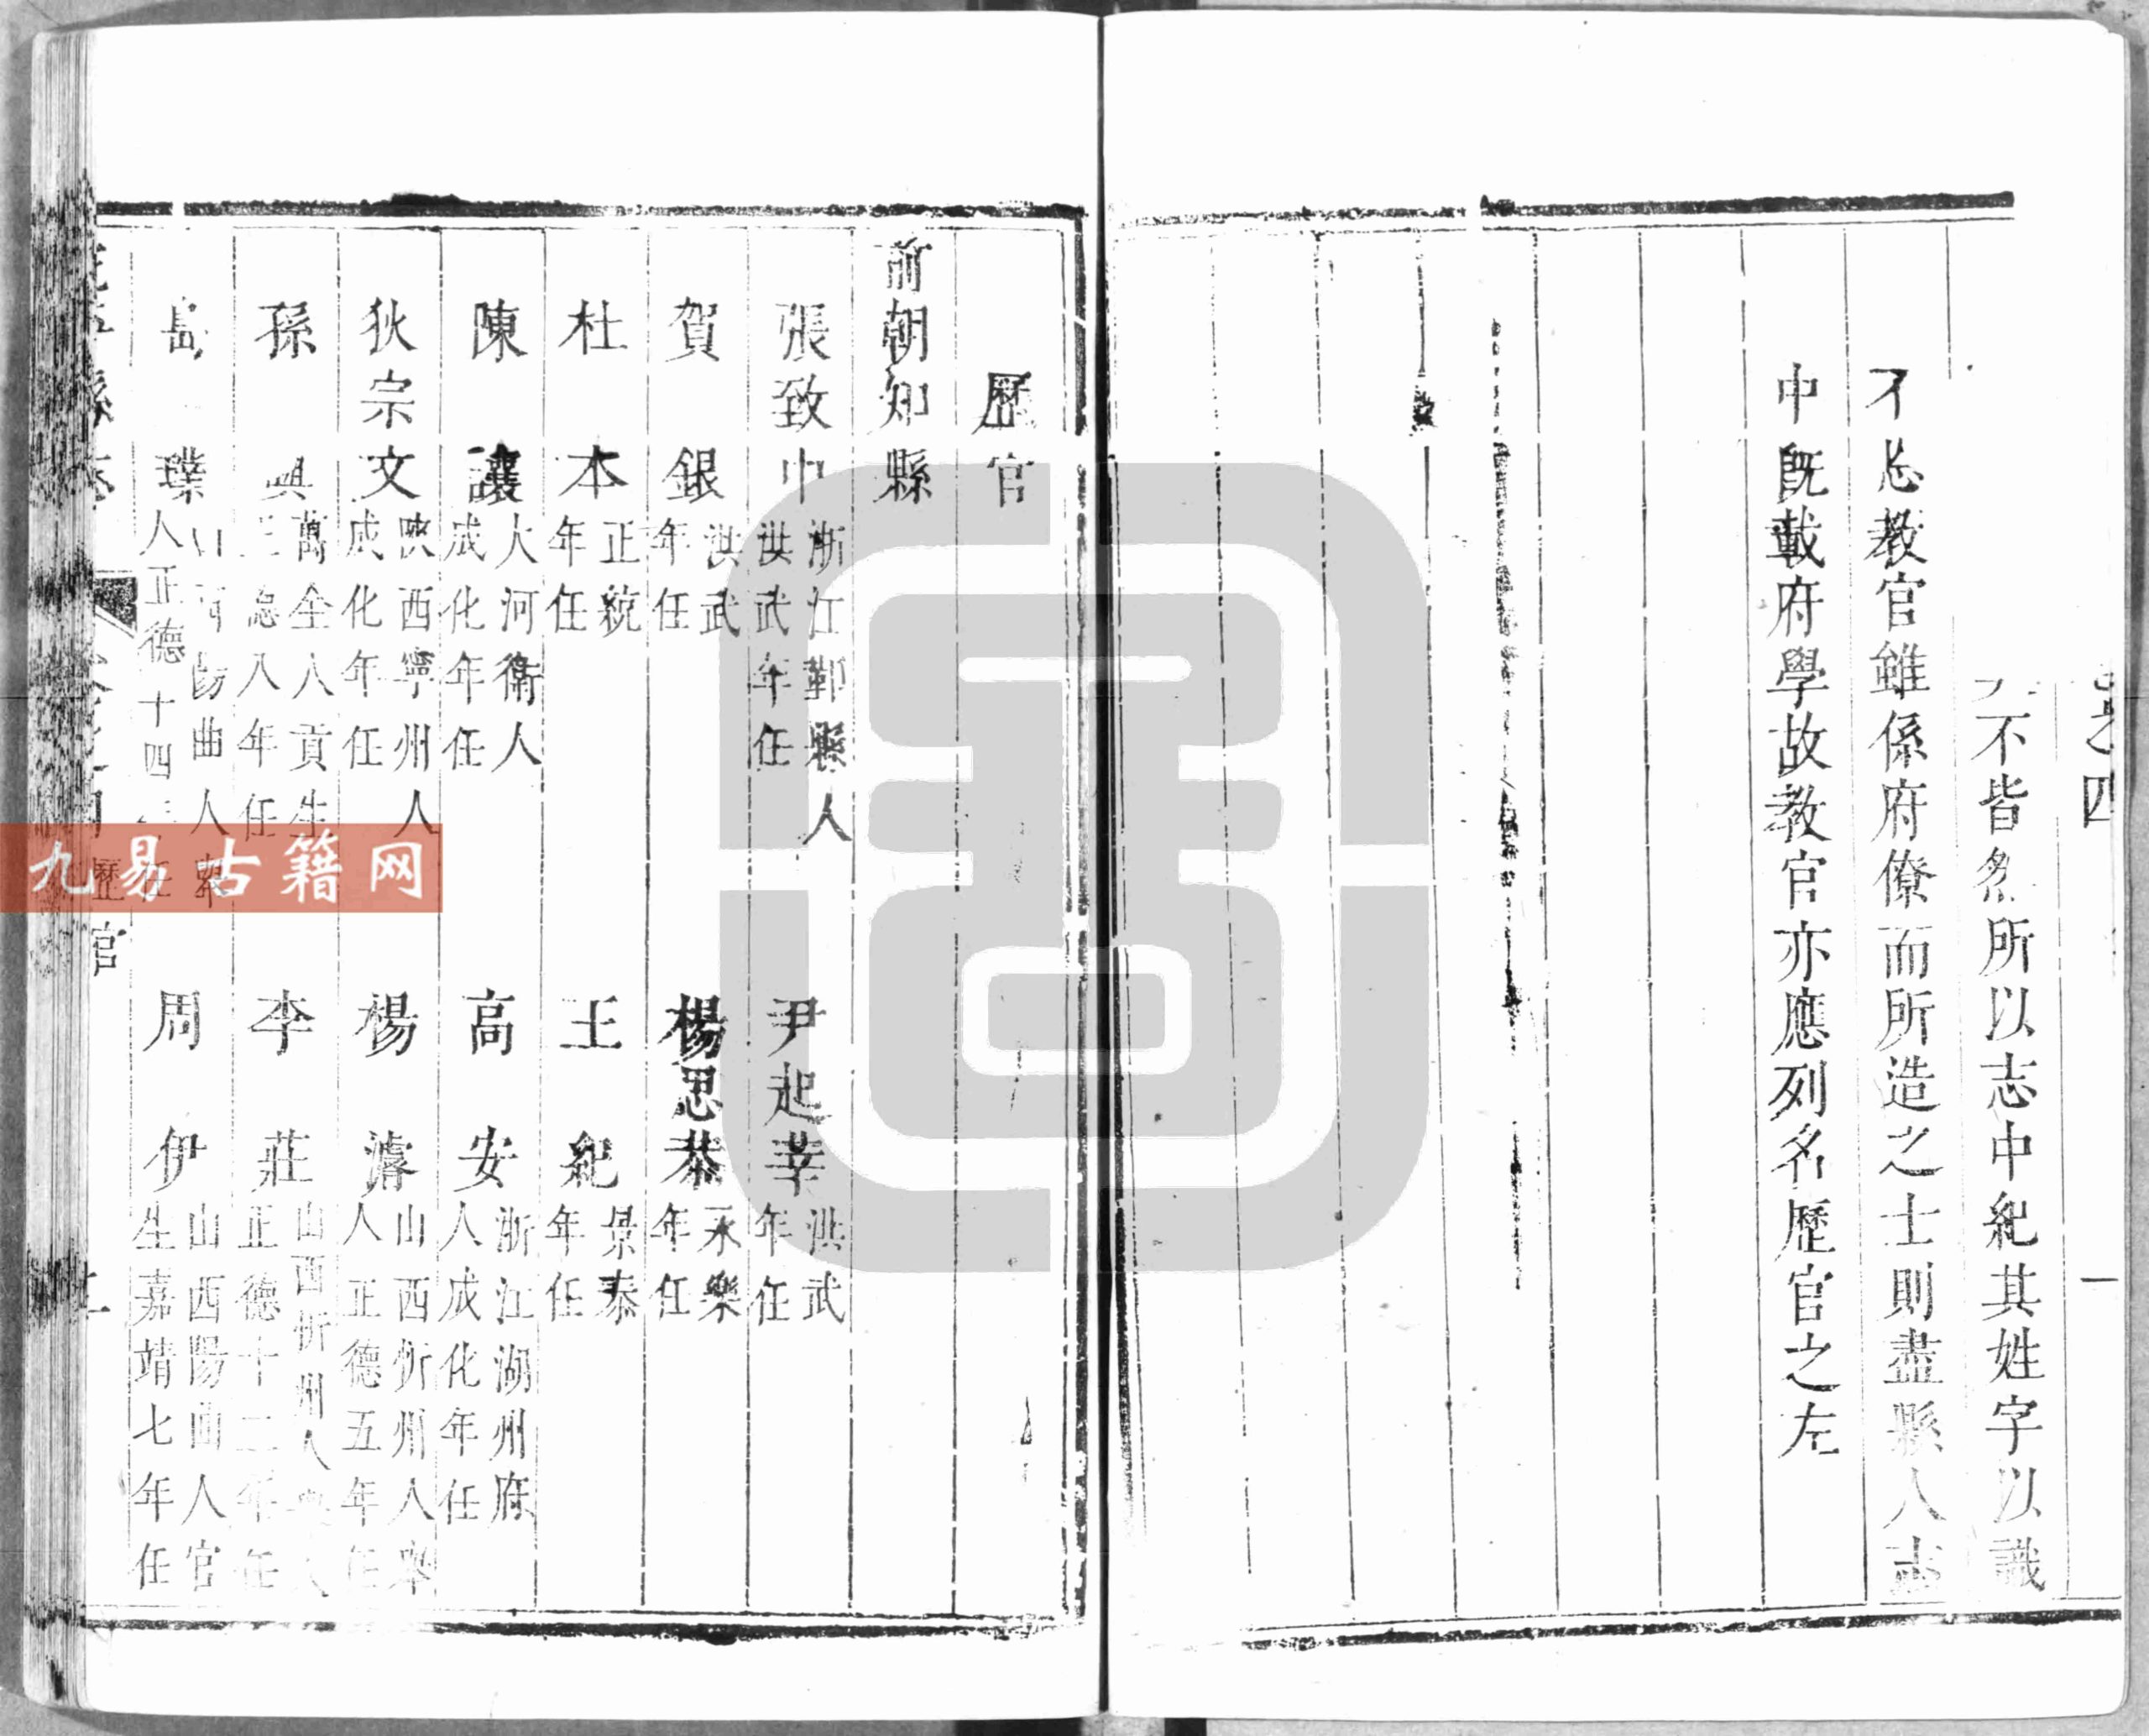 之四
一
不皆然所以志中紀其姓字以識
不忘教官雖係府僚而所造之士則盡縣人志
中既載府學故教官亦應列名歷官之左
歷官
前朝知縣
張致中 浙江鄞縣人
洪武年任
尹起莘 洪武
年任
賀銀 洪武
年任
楊思恭 永樂
年任
杜本 正統
年任
王紀 景泰
年任
陳讓 大河衛人
成化年任
高安 浙江湖州府
人成化年任
狄宗文 陝西寧州人
成化年任
楊濬 山西忻州人舉
人正德五年任
孫 萬全人貢生
正德八年任
李莊 山西忻州人
正德十二年任
岳璞 山西陽曲人舉
人正德十四年任
周伊 山西陽曲人官
生嘉靖七年任
歷官
九易古籍网